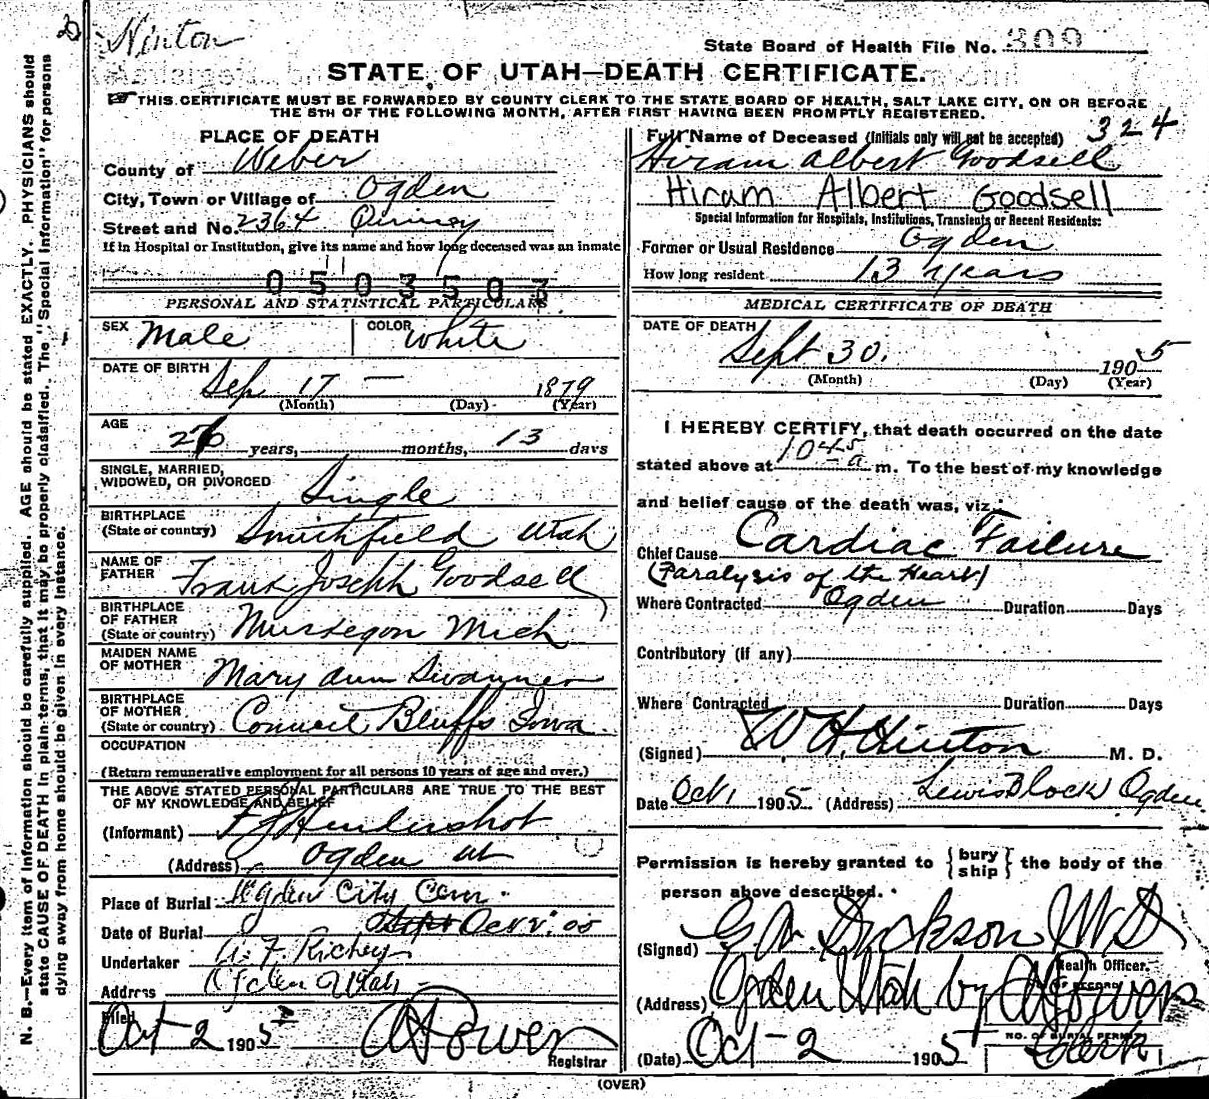 Hinton
State Board of Health File No. 309
STATE OF UTAH—DEATH CERTIFICATE.
THIS CERTIFICATE MUST BE FORWARDED BY COUNTY CLERK TO THE STATE BOARD OF HEALTH, SALT LAKE CITY, ON OR BEFORE
THE 5TH OF THE FOLLOWING MONTH, AFTER FIRST HAVING BEEN PROMPTLY REGISTERED.
PLACE OF DEATH
County of Weber
City, Town or Village of Ogden
Street and No. 2364 Quincy
If in Hospital or Institution, give its name and how long deceased was an inmate
0503503
PERSONAL AND STATISTICAL PARTICULARS
SEX Male COLOR White
DATE OF BIRTH Sep 17 — 1879
(Month) (Day) (Year)
AGE 26 years, months, 13 days
SINGLE, MARRIED,
WIDOWED, OR DIVORCED Single
BIRTHPLACE
(State or country) Smithfield Utah
NAME OF
FATHER Frank Joseph Goodsell
BIRTHPLACE
OF FATHER
(State or country) Muskegon Mich
MAIDEN NAME
OF MOTHER Mary Ann Swanner
BIRTHPLACE
OF MOTHER
(State or country) Council Bluffs Iowa
OCCUPATION
(Return remunerative employment for all persons 10 years of age and over.)
THE ABOVE STATED PERSONAL PARTICULARS ARE TRUE TO THE BEST
OF MY KNOWLEDGE AND BELIEF
(Informant) F J Hendershot
(Address) Ogden Ut
Place of Burial Ogden City Cem.
Date of Burial Sept Oct 2. 05
Undertaker A. F. Richey
Address Ogden Utah
Filed
Oct 2 1905 Powers
Registrar
324
Full Name of Deceased (Initials only will not be accepted)
Hiram Albert Goodsell
Hiram Albert Goodsell
Special Information for Hospitals, Institutions, Transients or Recent Residents:
Former or Usual Residence Ogden
How long resident 13 years
MEDICAL CERTIFICATE OF DEATH
DATE OF DEATH
Sept 30. 1905
(Month) (Day) (Year)
I HEREBY CERTIFY, that death occurred on the date
stated above at 1045 a m. To the best of my knowledge
and belief cause of the death was, viz.:
Chief Cause Cardiac Failure
(Paralysis of the Heart)
Where Contracted Ogden Duration Days
Contributory (if any)
Where Contracted Duration Days
(Signed) W H. Hinton M. D.
Date Oct 1 1905 (Address) Lewis Block Ogden
Permission is hereby granted to { bury ship } the body of the
person above described.
(Signed) Dickson MD
Health Officer.
(Address) Ogden Utah by Powers
NO. OF BURIAL PERMIT
(Date) Oct - 2 1905 Clerk
(OVER)
N. B.—Every item of information should be carefully supplied. AGE should be stated EXACTLY. PHYSICIANS should
state CAUSE OF DEATH in plain terms, that it may be properly classified. The "Special Information" for persons
dying away from home should be given in every instance.